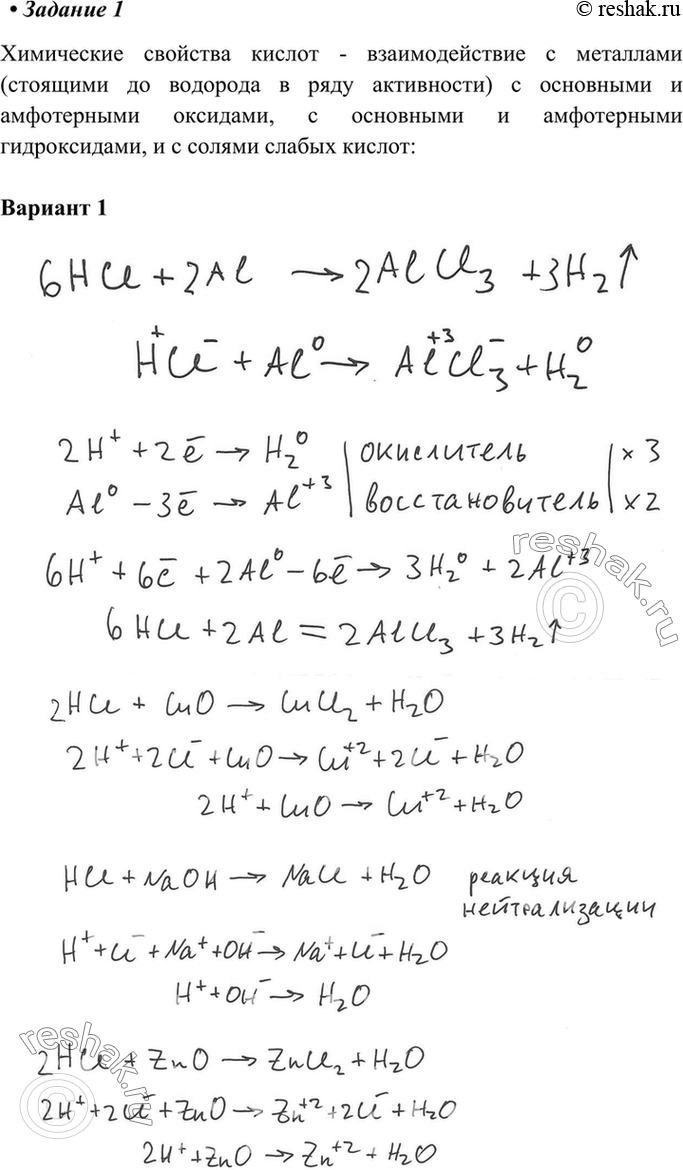 • Задание 1
© reshak.ru
Химические свойства кислот - взаимодействие с металлами
(стоящими до водорода в ряду активности) с основными и
амфотерными оксидами, с основными и амфотерными
гидроксидами, и с солями слабых кислот:
Вариант 1
6HCl + 2Al → 2AlCl₃ + 3H₂↑
H⁺Cl⁻ + Al⁰ → Al⁺³Cl₃⁻ + H₂⁰
2H⁺ + 2ē → H₂⁰ | окислитель | ×3
Al⁰ - 3ē → Al⁺³ | восстановитель | ×2
6H⁺ + 6ē + 2Al⁰ - 6ē → 3H₂⁰ + 2Al⁺³
6HCl + 2Al = 2AlCl₃ + 3H₂↑
2HCl + CuO → CuCl₂ + H₂O
2H⁺ + 2Cl⁻ + CuO → Cu⁺² + 2Cl⁻ + H₂O
2H⁺ + CuO → Cu⁺² + H₂O
HCl + NaOH → NaCl + H₂O реакция
нейтрализации
H⁺ + Cl⁻ + Na⁺ + OH⁻ → Na⁺ + Cl⁻ + H₂O
H⁺ + OH⁻ → H₂O
2HCl + ZnO → ZnCl₂ + H₂O
2H⁺ + 2Cl⁻ + ZnO → Zn⁺² + 2Cl⁻ + H₂O
2H⁺ + ZnO → Zn⁺² + H₂O
reshak.ru
reshak.ru